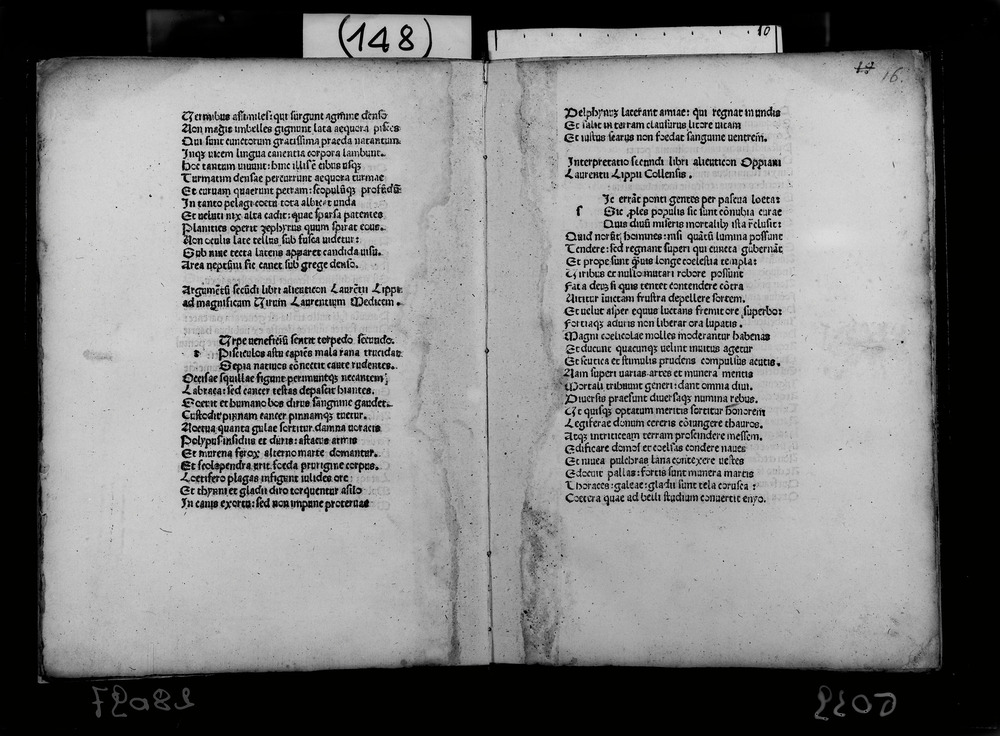 (148)
10
17 16.
Ueruibus assimiles: qui surgunt agmine denso
Non magis imbelles gignunt lata aequora pisces
Qui sunt cunctorum gratissima praeda natantum
Inqȝ uicem lingua canentia corpora lambunt.
Hoc tantum uiuunt: hinc illis ē cibus usqȝ
Turmatim densae percurrunt aequora turmae
Et curuam quaerunt petram: scopulūqȝ profūdū
In tanto pelagi coetu tota albicat unda
Et ueluti nix alta cadit: quae sparsa patentes
Planities operit zephyrus quum spirat eous.
Non oculis late tellus sub fusca uidetur:
Sub niue tecta latens apparet candida uisu.
Area neptūni sic canet sub grege denso.
Argumētū secūdi libri alieuticon Laurētii Lippi
ad magnificum Uirum Laurentium Medicem.
Urpe ueneficiū sentit torpedo secundo.
Pisciculos astu capiēs mala rana trucidat
Sepia natiuos cōnectit caute rudentes.
Occisae squillae figunt perimuntqȝ necantem
Labraca: sed cancer testas depascit hiantes.
Pocrit et humano bos dirus sanguine gaudet.
Custodit pinnam cancer pinnamqȝ tuetur.
Noctua quanta gulae sortitur damna uoracis
Polypus insidiis et duris: astacus armis
Et murena ferox alterno marte domantur.
Et scolapendra urit foeda prurigine corpus.
Loetifero plagas infigunt iulides ore:
Et thynni et gladii diro torquentur asilo
In canis exortu: sed non impune proteruas
Delphynus lacerant amiae: qui regnat in undis
Et salit in terram clausurus litore uitam
Et iustus scarus non foedat sanguine uentrem.
Interpretatio secundi libri alieuticon Oppiani
Laurentii Lippii Collensis.
Ic errāt ponti gentes per pascua loeta:
s Sic ples populis sic sunt cōnubia curae
Quis diuū miseris mortalibȝ ista relusit:
Quid norūt homines: nisi quātū lumina possunt
Tendere: sed regnant superi qui cuncta gubernāt
Et prope sunt quis longe coelestia templa:
Uiribus et nullo mutari robore possunt
Fata deū si quis tentet contendere cōtra
Utitur inuictam frustra depellere sortem.
Et uelut asper equus luctans fremit ore superbo:
Fortiaqȝ a duris non liberat ora lupatis.
Magni coelicolae molles moderantur habenas
Et ducunt quacunqȝ uelint inuitus agetur
Et scutica et stimulis prudens compulsus acutis.
Nam superi uarias artes et munera mentis
Mortali tribuunt generi: dant omnia diui.
Diuersis praesunt diuersaqȝ numina rebus.
Ut quisqȝ optatum meritis sortitur honorem
Legiferae donum cereris cōiungere thauros.
Atqȝ in triticeam terram proscindere messem.
Edificare domos et coelsas condere naues
Et niuea pulchras lana contexere uestes
Edocuit pallas: fortis sunt munera martis
Thoraces: galeae: gladii sunt tela corusca:
Coetera quae ad belli studium conuertit enyo.
28097
6039